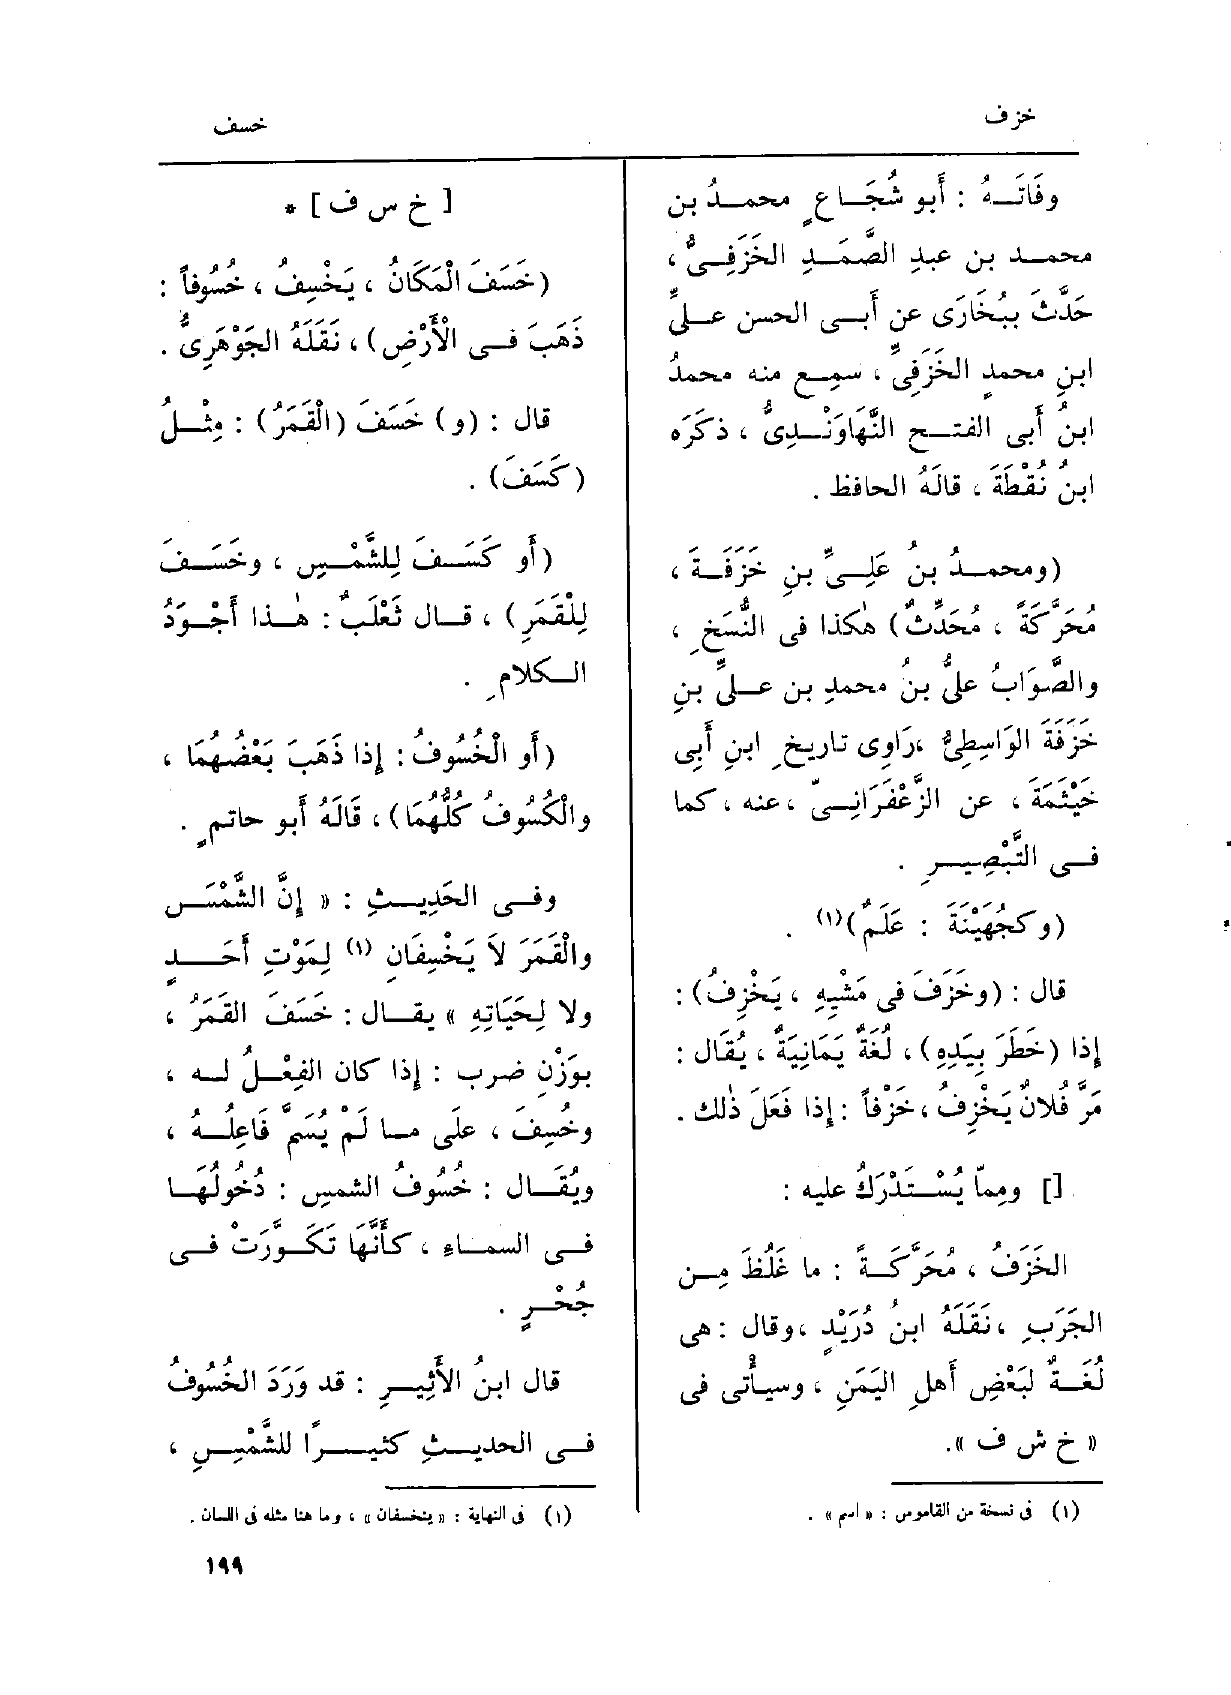 خزف
خسف
وفَاتَــهُ : أَبو شُجَــاعٍ محمــدُ بن
محمــد بن عبدِ الصَّمَــدِ الخَزَفِــىُّ ،
حَدَّثَ ببُخَارَى عن أَبــى الحسن علــىِّ
ابنِ محمدٍ الخَزَفِىِّ ، سمِـع منه محمدُ
ابنُ أَبى الفتــح النَّهَاوَنْــدِىُّ ، ذكَرَه
ابنُ نُقْطَةَ ، قالَهُ الحافظ .
(ومحمــدُ بنُ عَلِــىِّ بنِ خَزَفَــةَ ،
مُحَرَّكَةً ، مُحَدِّثٌ) هٰكذا فى النُّسَخِ ،
والصَّوَابُ علىُّ بنُ محمدِ بن علىِّ بنِ
خَزَفَةَ الوَاسِطِىُّ ،رَاوِى تاريخِ ابنِ أَبى
خَيْثَمَةَ ، عن الزَّعْفَرَانِــىّ ، عنه ، كما
فــى التَّبْصِيــرِ .
(وكجُهَيْنَةَ : عَلَمٌ)(١) .
قال : (وخَزَفَ فى مَشْيِهِ ، يَخْزِفُ) :
إذا (خَطَرَ بِيَدِهِ) ، لُغَةٌ يَمَانِيَةٌ ، يُقَال :
مَرَّ فُلانٌ يَخْزِفُ ، خَزْفاً : إذا فَعَلَ ذٰلك .
[] وممّا يُسْتَدْرَكُ عليه :
الخَزَفُ ، مُحَرَّكَــةً : ما غَلُظَ مِــن
الجَرَبِ ، نَقَلَهُ ابنُ دُرَيْدٍ ، وقال : هى
لُغَــةٌ لبَعْضِ أَهلِ اليَمَنِ ، وسيأْتى فى
« خ ش ف ».
(١) فى نسخة من القاموس : « اسم » .
[ خ س ف ] *
(خَسَفَ الْمَكَانُ ، يَخْسِفُ ، خُسُوفاً :
ذَهَبَ فــى الْأَرْضِ) ، نَقَلَهُ الجَوْهَرِىُّ .
قال : (و) خَسَفَ (الْقَمَرُ) : مِثْــلُ
(كَسَفَ) .
(أَو كَسَــفَ لِلشَّمْــسِ ، وخَسَــفَ
لِلْقَمَرِ) ، قــال ثَعْلَبٌ : هٰــذا أَجْــوَدُ
الــكلامِ .
(أَو الْخُسُوفُ : إذا ذَهَبَ بَعْضُهُمَا ،
والْكُسُوفُ كُلُّهُمَا) ، قَالَهُ أَبو حاتمٍ .
وفــى الحَدِيــثِ : « إنَّ الشَّمْــسَ
والْقَمَرَ لاَ يَخْسِفَانِ (١) لِمَوْتِ أَحَــدٍ
ولا لِحَيَاتِهِ » يقــال : خَسَفَ القَمَرُ ،
بوَزْنِ ضرب : إذا كان الفِعْــلُ لــه ،
وخُسِفَ ، علَى مــا لَمْ يُسَمَّ فَاعِلُــهُ ،
ويُقَــال : خُسُوفُ الشمسِ : دُخُولُهَــا
فــى السمــاءِ ، كأَنَّها تَكَــوَّرَتْ فــى
جُحْــرٍ .
قال ابنُ الأَثِيــرِ : قد وَرَدَ الخُسُوفُ
فــى الحديــثِ كثيــرًا للشَّمْــسِ ،
(١) فى النهاية : « ينخسفان » ، وما هنا مثله فى اللسان .
١٩٩